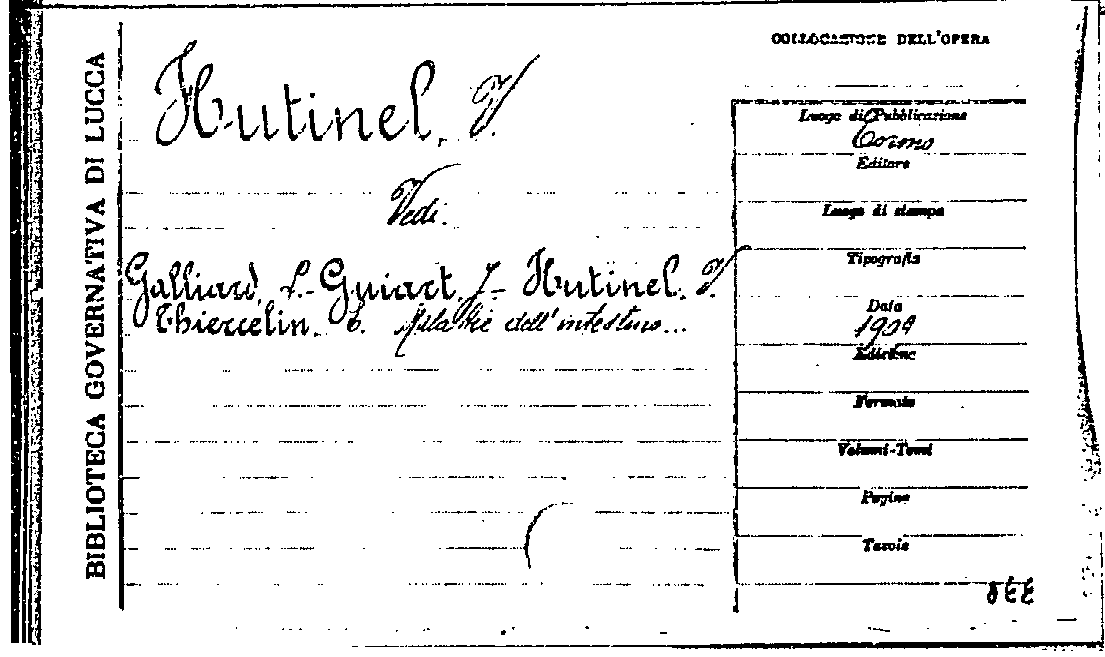 BIBLIOTECA GOVERNATIVA DI LUCCA
Hutinel, V.
Vedi.
Galliard, L.- Guiart, J.- Hutinel. V.
Thiercelin. E. Malattie dell'intestino...
COLLOCAZIONE DELL'OPERA
Luogo di Pubblicazione
Torino
Editore
Luogo di stampa
Tipografia
Data
1909
Edizione
Formato
Volumi-Tomi
Pagine
Tavole